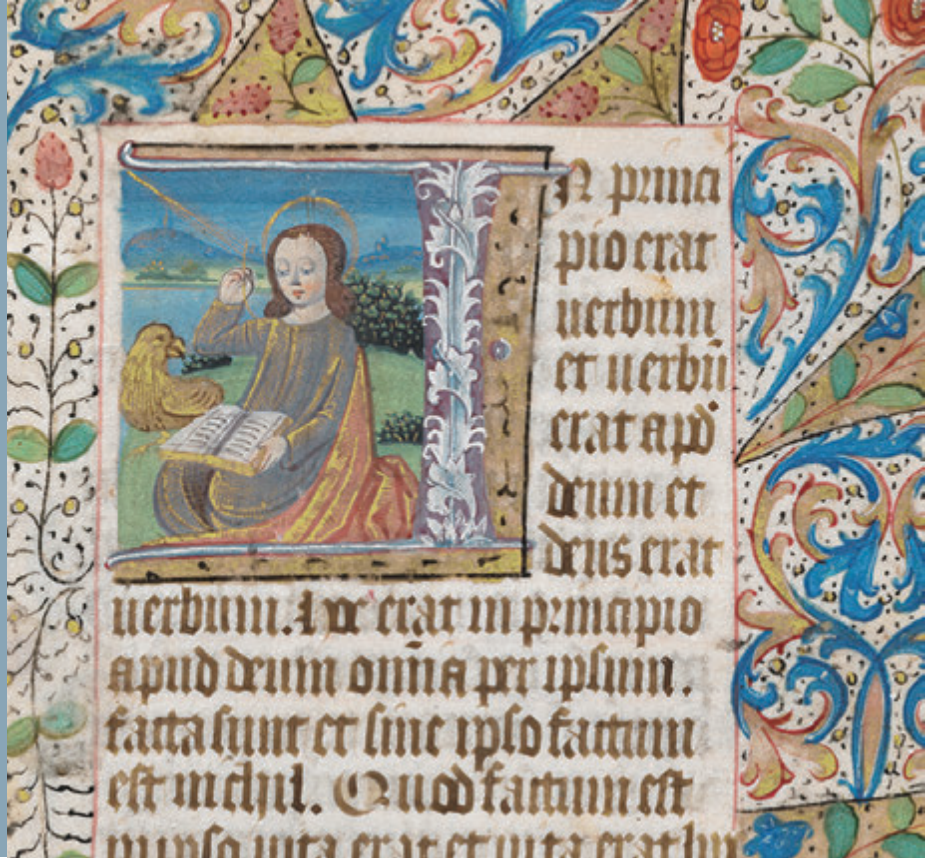 In princi
pio erat
uerbum
et uerbū
erat apd̄
deum et
deus erat
uerbum. Hoc erat in principio
apud deum om̄ia per ipsum.
facta sunt et sine ipso factum
est nichil. Quod factum est
in ipso uita erat et uita erat lux